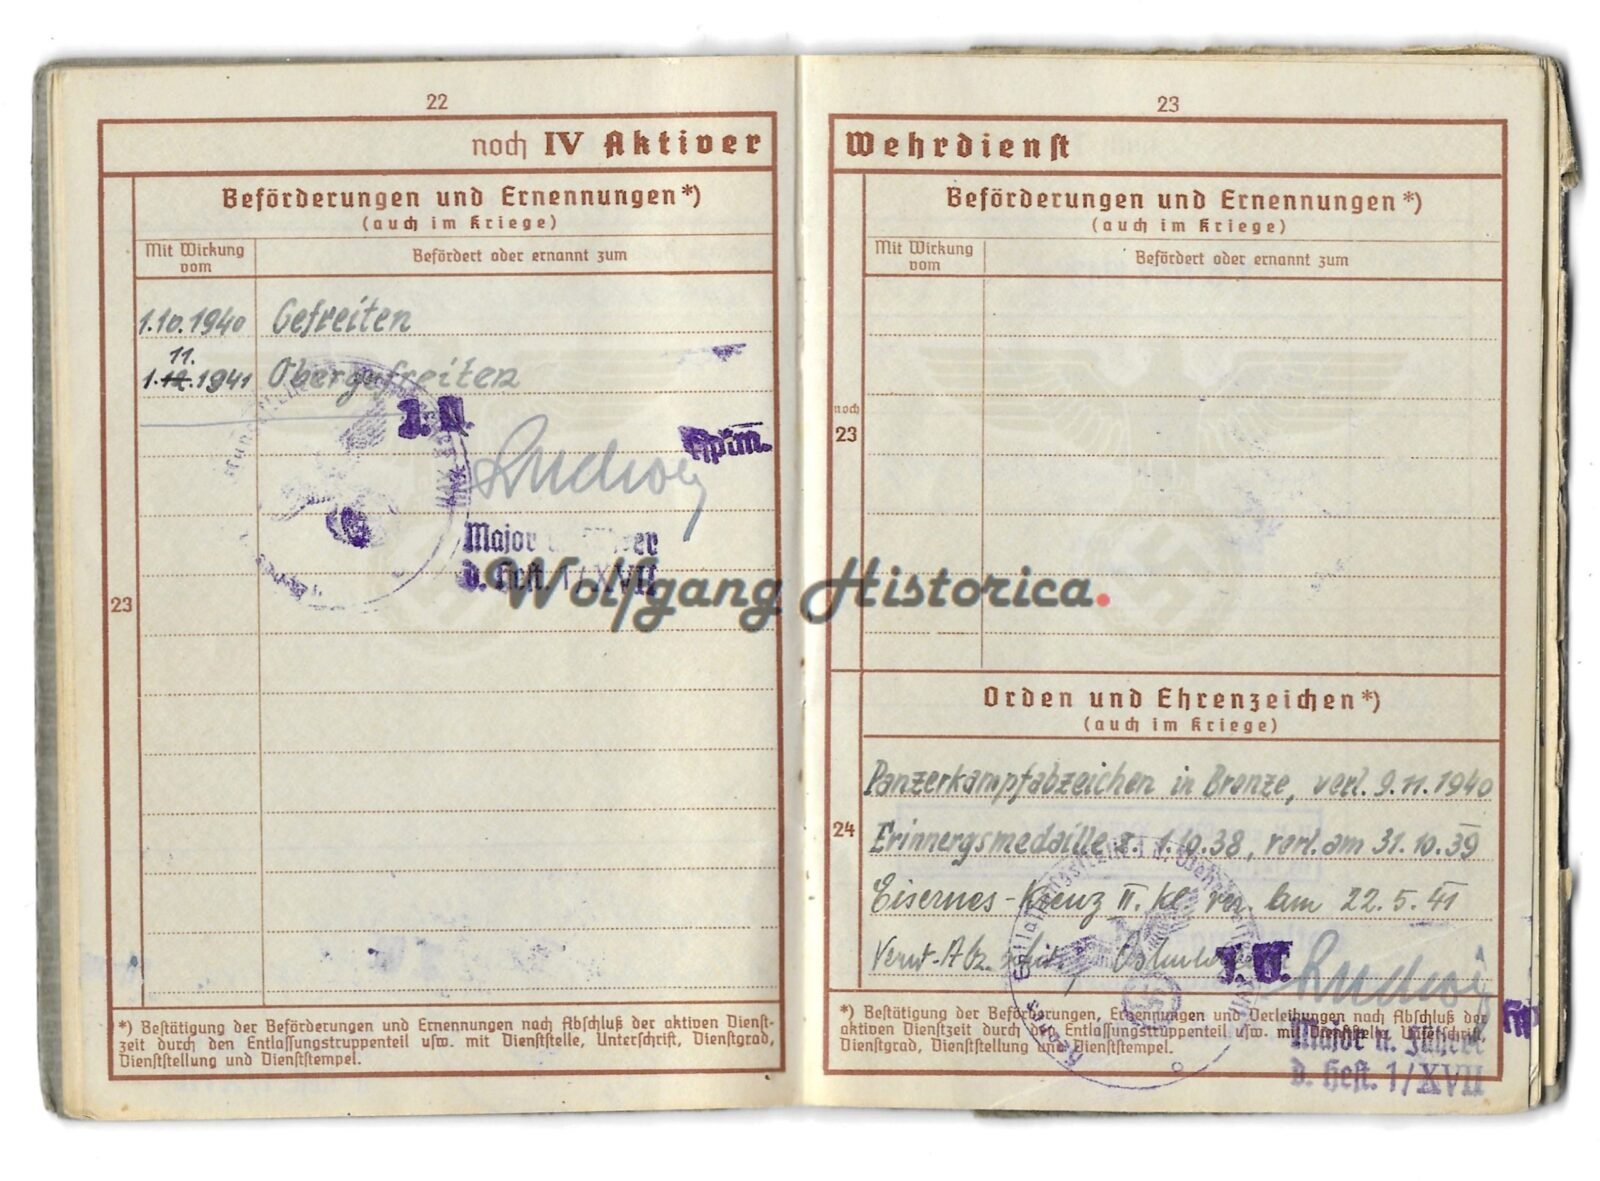 22
noch IV Aktiver
Beförderungen und Ernennungen*)
(auch im Kriege)
Mit Wirkung vom
Befördert oder ernannt zum
1.10.1940 Gefreiten
11.
1.12.1941 Obergefreiten
Hptm.
Ludwig
Major u. Führer
d. Heft. 1/XVII
23
*) Bestätigung der Beförderungen und Ernennungen nach Abschluß der aktiven Dienst-
zeit durch den Entlassungstruppenteil usw. mit Dienststelle, Unterschrift, Dienstgrad,
Dienststellung und Dienststempel.
23
Wehrdienst
Beförderungen und Ernennungen*)
(auch im Kriege)
Mit Wirkung vom
Befördert oder ernannt zum
noch
23
Orden und Ehrenzeichen*)
(auch im Kriege)
Panzerkampfabzeichen in Bronze, verl. 9.11.1940
24
Erinnergsmedaille z. 1.10.38, verl. am 31.10.39
Eisernes-Kreuz II. Kl. ver. am 22.5.41
Verw.-Abz.
Ludwig
*) Bestätigung der Beförderungen, Ernennungen und Verleihungen nach Abschluß der
aktiven Dienstzeit durch den Entlassungstruppenteil usw. mit Dienststelle, Unterschrift,
Dienstgrad, Dienststellung und Dienststempel.
Major u. Führer
d. Heft. 1/XVII
Wolfgang Historica.